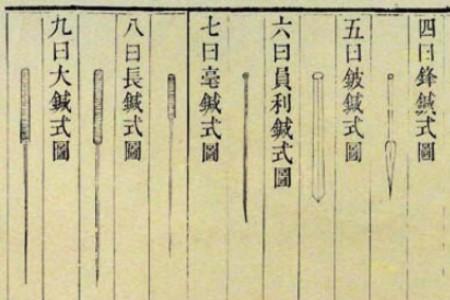 四曰鋒鍼式圖
五曰鈹鍼式圖
六曰員利鍼式圖
七曰毫鍼式圖
八曰長鍼式圖
九曰大鍼式圖